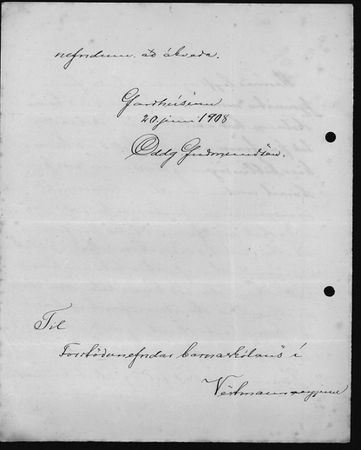 nefndum að ákveða.
Garðhúsum
20 júní 1908
Oddg Guðmundsson.
Til
Forstöðunefndar barnaskólans í
Vestmannaeyjum